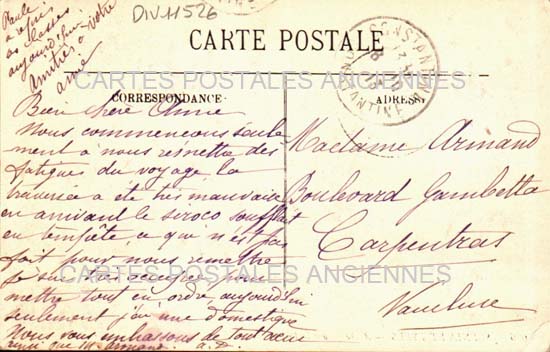 Paule
a repris
ses classes
aujourd'hui
Amitiés à votre
amie
DIV-11526
CARTE POSTALE
CONSTANTINE
CARTES POSTALES ANCIENNES
CORRESPONDANCE
ADRESSE
Bien chère Amie
Nous commençons seule
ment à nous remettre des
fatigues du voyage, la
traversée a été très mauvaise
en arrivant le siroco soufflait
en tempête, ce qui n'est pas
fait pour nous remettre
Je suis très occupée pour
mettre tout en ordre, aujourd'hui
seulement j'ai une domestique
Nous vous embrassons de tout cœur
ainsi que M. Armand
Madame Armand
Boulevard Gambetta
Carpentras
CARTES POSTALES ANCIENNES
Vaucluse